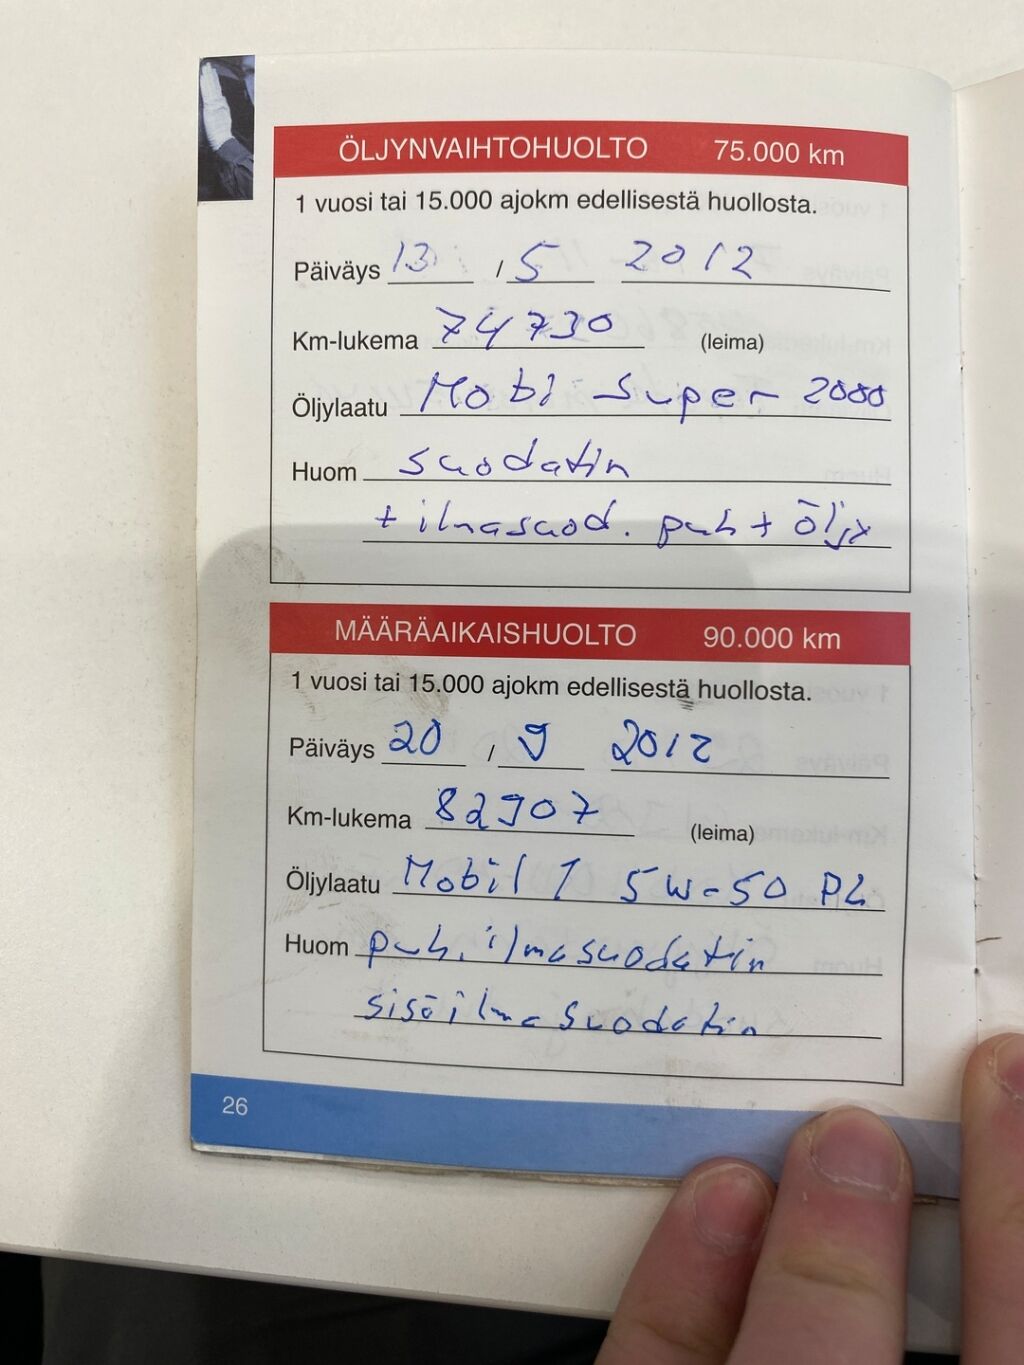 ÖLJYNVAIHTOHUOLTO 75.000 km
1 vuosi tai 15.000 ajokm edellisestä huollosta.
Päiväys 13 / 5 2012
Km-lukema 74730 (leima)
Öljylaatu Mobil Super 2000
Huom suodatin
+ ilmasuod. puh + öljy
MÄÄRÄAIKAISHUOLTO 90.000 km
1 vuosi tai 15.000 ajokm edellisestä huollosta.
Päiväys 20 / 9 2012
Km-lukema 82907 (leima)
Öljylaatu Mobil 1 5W-50
Huom puh. ilmasuodatin
sisäilmasuodatin
26